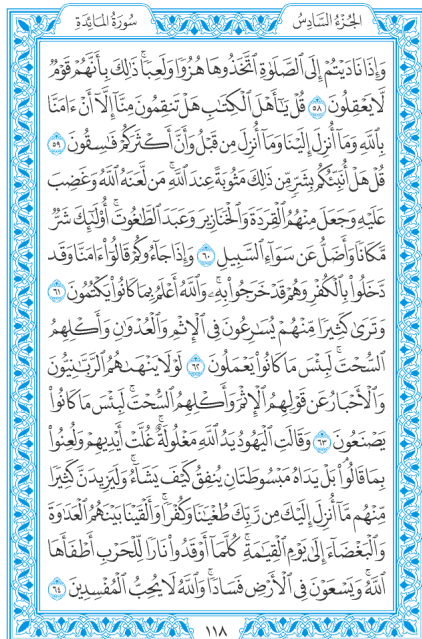 الجُزْءُ السَّادِسُ
سُورَةُ المَائِدَةِ
وَإِذَا نَادَيْتُمْ إِلَى ٱلصَّلَوٰةِ ٱتَّخَذُوهَا هُزُوًا وَلَعِبًا ۚ ذَٰلِكَ بِأَنَّهُمْ قَوْمٌ
لَّا يَعْقِلُونَ ٥٨ قُلْ يَٰٓأَهْلَ ٱلْكِتَٰبِ هَلْ تَنقِمُونَ مِنَّآ إِلَّآ أَنْ ءَامَنَّا
بِٱللَّهِ وَمَآ أُنزِلَ إِلَيْنَا وَمَآ أُنزِلَ مِن قَبْلُ وَأَنَّ أَكْثَرَكُمْ فَٰسِقُونَ ٥٩
قُلْ هَلْ أُنَبِّئُكُم بِشَرٍّ مِّن ذَٰلِكَ مَثُوبَةً عِندَ ٱللَّهِ ۚ مَن لَّعَنَهُ ٱللَّهُ وَغَضِبَ
عَلَيْهِ وَجَعَلَ مِنْهُمُ ٱلْقِرَدَةَ وَٱلْخَنَازِيرَ وَعَبَدَ ٱلطَّٰغُوتَ ۚ أُو۟لَٰٓئِكَ شَرٌّ
مَّكَانًا وَأَضَلُّ عَن سَوَآءِ ٱلسَّبِيلِ ٦٠ وَإِذَا جَآءُوكُمْ قَالُوٓا۟ ءَامَنَّا وَقَد
دَّخَلُوا۟ بِٱلْكُفْرِ وَهُمْ قَدْ خَرَجُوا۟ بِهِۦ ۚ وَٱللَّهُ أَعْلَمُ بِمَا كَانُوا۟ يَكْتُمُونَ ٦١
وَتَرَىٰ كَثِيرًا مِّنْهُمْ يُسَٰرِعُونَ فِى ٱلْإِثْمِ وَٱلْعُدْوَٰنِ وَأَكْلِهِمُ
ٱلسُّحْتَ ۚ لَبِئْسَ مَا كَانُوا۟ يَعْمَلُونَ ٦٢ لَوْلَا يَنْهَىٰهُمُ ٱلرَّبَّٰنِيُّونَ
وَٱلْأَحْبَارُ عَن قَوْلِهِمُ ٱلْإِثْمَ وَأَكْلِهِمُ ٱلسُّحْتَ ۚ لَبِئْسَ مَا كَانُوا۟
يَصْنَعُونَ ٦٣ وَقَالَتِ ٱلْيَهُودُ يَدُ ٱللَّهِ مَغْلُولَةٌ ۚ غُلَّتْ أَيْدِيهِمْ وَلُعِنُوا۟
بِمَا قَالُوا۟ ۘ بَلْ يَدَاهُ مَبْسُوطَتَانِ يُنفِقُ كَيْفَ يَشَآءُ ۚ وَلَيَزِيدَنَّ كَثِيرًا
مِّنْهُم مَّآ أُنزِلَ إِلَيْكَ مِن رَّبِّكَ طُغْيَٰنًا وَكُفْرًا ۚ وَأَلْقَيْنَا بَيْنَهُمُ ٱلْعَدَٰوَةَ
وَٱلْبَغْضَآءَ إِلَىٰ يَوْمِ ٱلْقِيَٰمَةِ ۚ كُلَّمَآ أَوْقَدُوا۟ نَارًا لِّلْحَرْبِ أَطْفَأَهَا
ٱللَّهُ ۚ وَيَسْعَوْنَ فِى ٱلْأَرْضِ فَسَادًا ۚ وَٱللَّهُ لَا يُحِبُّ ٱلْمُفْسِدِينَ ٦٤
١١٨